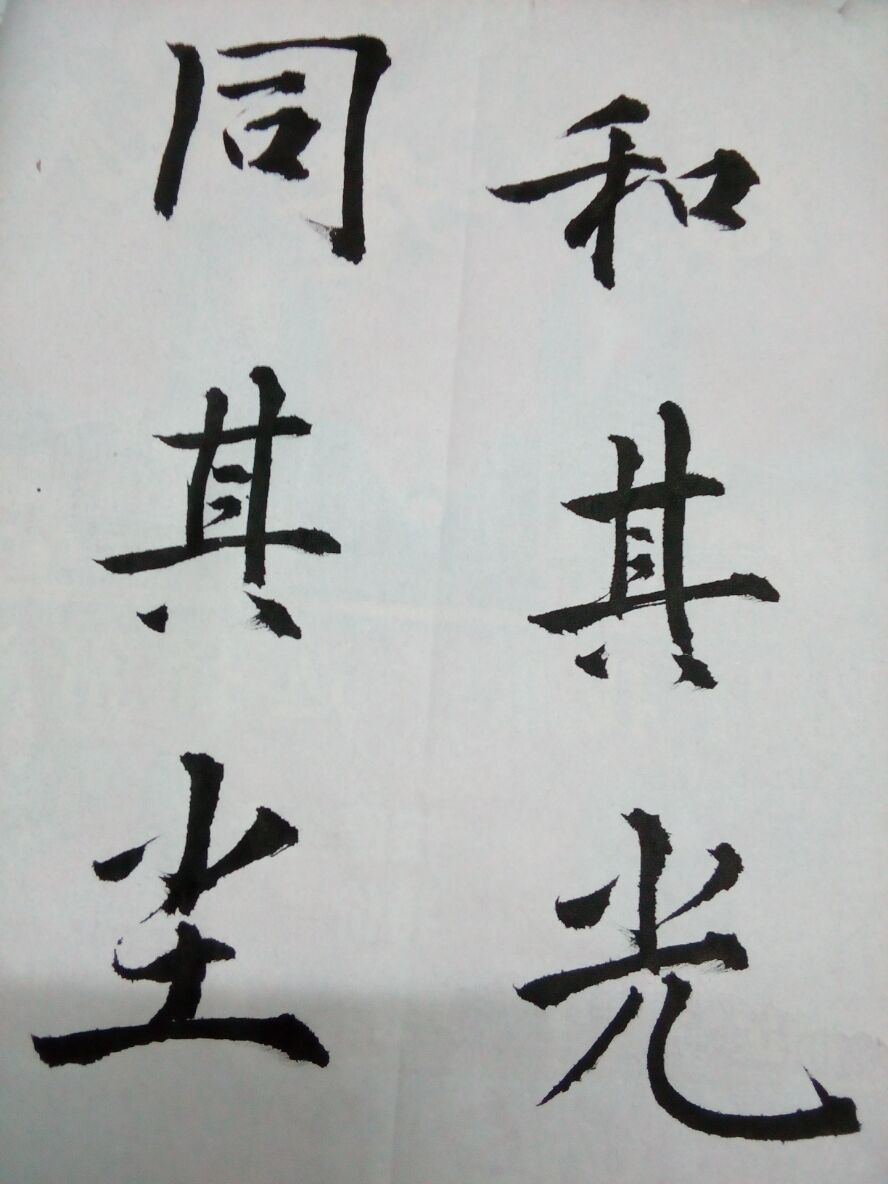 和其光
同其尘